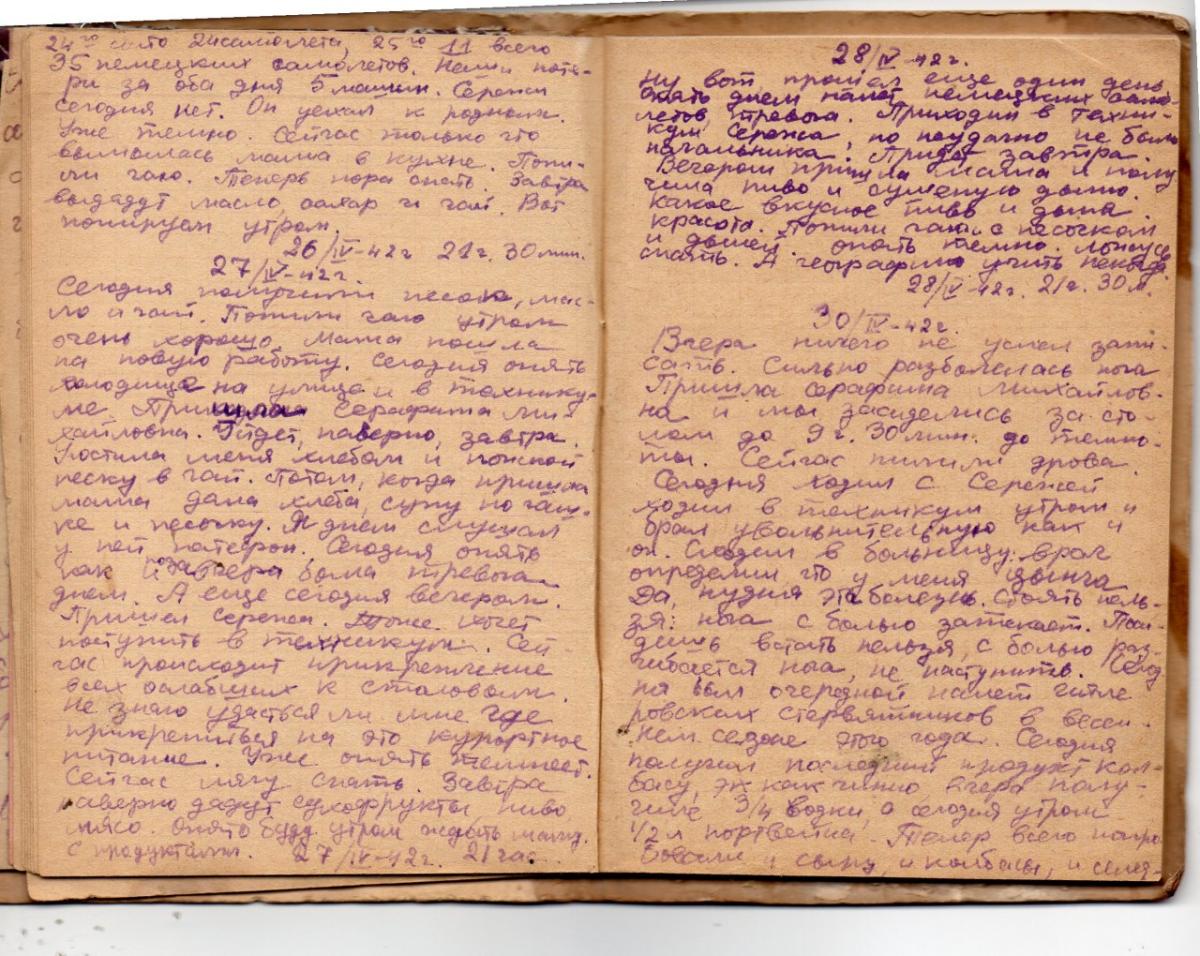 24го сбито 24 самолета, 25го 11 всего
35 немецких самолетов. Наши поте-
ри за оба дня 5 машин. Сережи
сегодня нет. Он уехал к родном.
Уже темно. Сейчас только что
вымылась мама в кухне. Попи-
ли чаю. Теперь пора спать. Завтра
выдадут масло, сахар и чай. Вот
попируем утром.
26/IV-42г 21г. 30 мин.
27/IV-42г.
Сегодня получили песок, мас-
ло и чай. Попили чаю утром
очень хорошо. Мама пошла
на новую работу. Сегодня опять
холодище на улице и в технику-
ме. Пришла Серафима Ми-
хайловна. Уйдет, наверно, завтра.
Угостила меня хлебом и
песку в чай. Потом, когда пришла
мама дала хлеба, супу по чаш-
ке и песочку. Я днем слушал
у ней патефон. Сегодня опять
как и вчера была тревога
днем. А еще сегодня вечером.
Пришел Сережа. Тоже хочет
поступить в техникум. Сей-
час происходит прикрепление
всех ослабших к столовым.
Не знаю удасться ли мне где
прикрепиться на это курортное
питание. Уже опять темнеет.
Сейчас лягу спать. Завтра
наверно дадут сухофрукты пиво
мясо. Опять буду утром ждать маму
с продуктами. 27/IV-42г. 21 час.
28/IV-42г.
Ну вот прошел еще один день
опять днем налет немецких само-
летов тревога. Приходил в техни-
кум Сережа, но неудачно не было
начальника. Придет завтра.
Вечером пришла мама и полу-
чила пиво и сушеную дыню.
Какое вкусное пиво и дыня
красота. Попили чаю с песочком
и дыней. опять темно. Ложусь
спать. А географию учить некогда.
28/IV-42г. 21г. 30 м.
30/IV-42г.
Вчера ничего не успел запи-
сать. Сильно разболелась нога
Пришла Серафима Михайлов-
на и мы засиделись за сто-
лом до 9 г. 30 мин. до темно-
ты. Сейчас пилили дрова.
Сегодня ходил с Сережей
ходил в техникум утром и
брал увольнительную как и
он. Сходил в больницу. врач
определил что у меня цынга
Да, нудная эта болезнь. Стоять нель-
зя: нога с болью затекает. Поси-
дишь встать нельзя, с болью раз-
гибается нога, не наступить. Сегод
ня был очередной налет гитле
ровских стервятников в весен-
нем сезоне этого года. Сегодня
получил последний продукт кол-
басу, так как вчера полу-
чили 3/4 водки, а сегодня утром
1/2 л портвейна. Теперь всего попро
бовали и сыру, и колбасы, и селе-